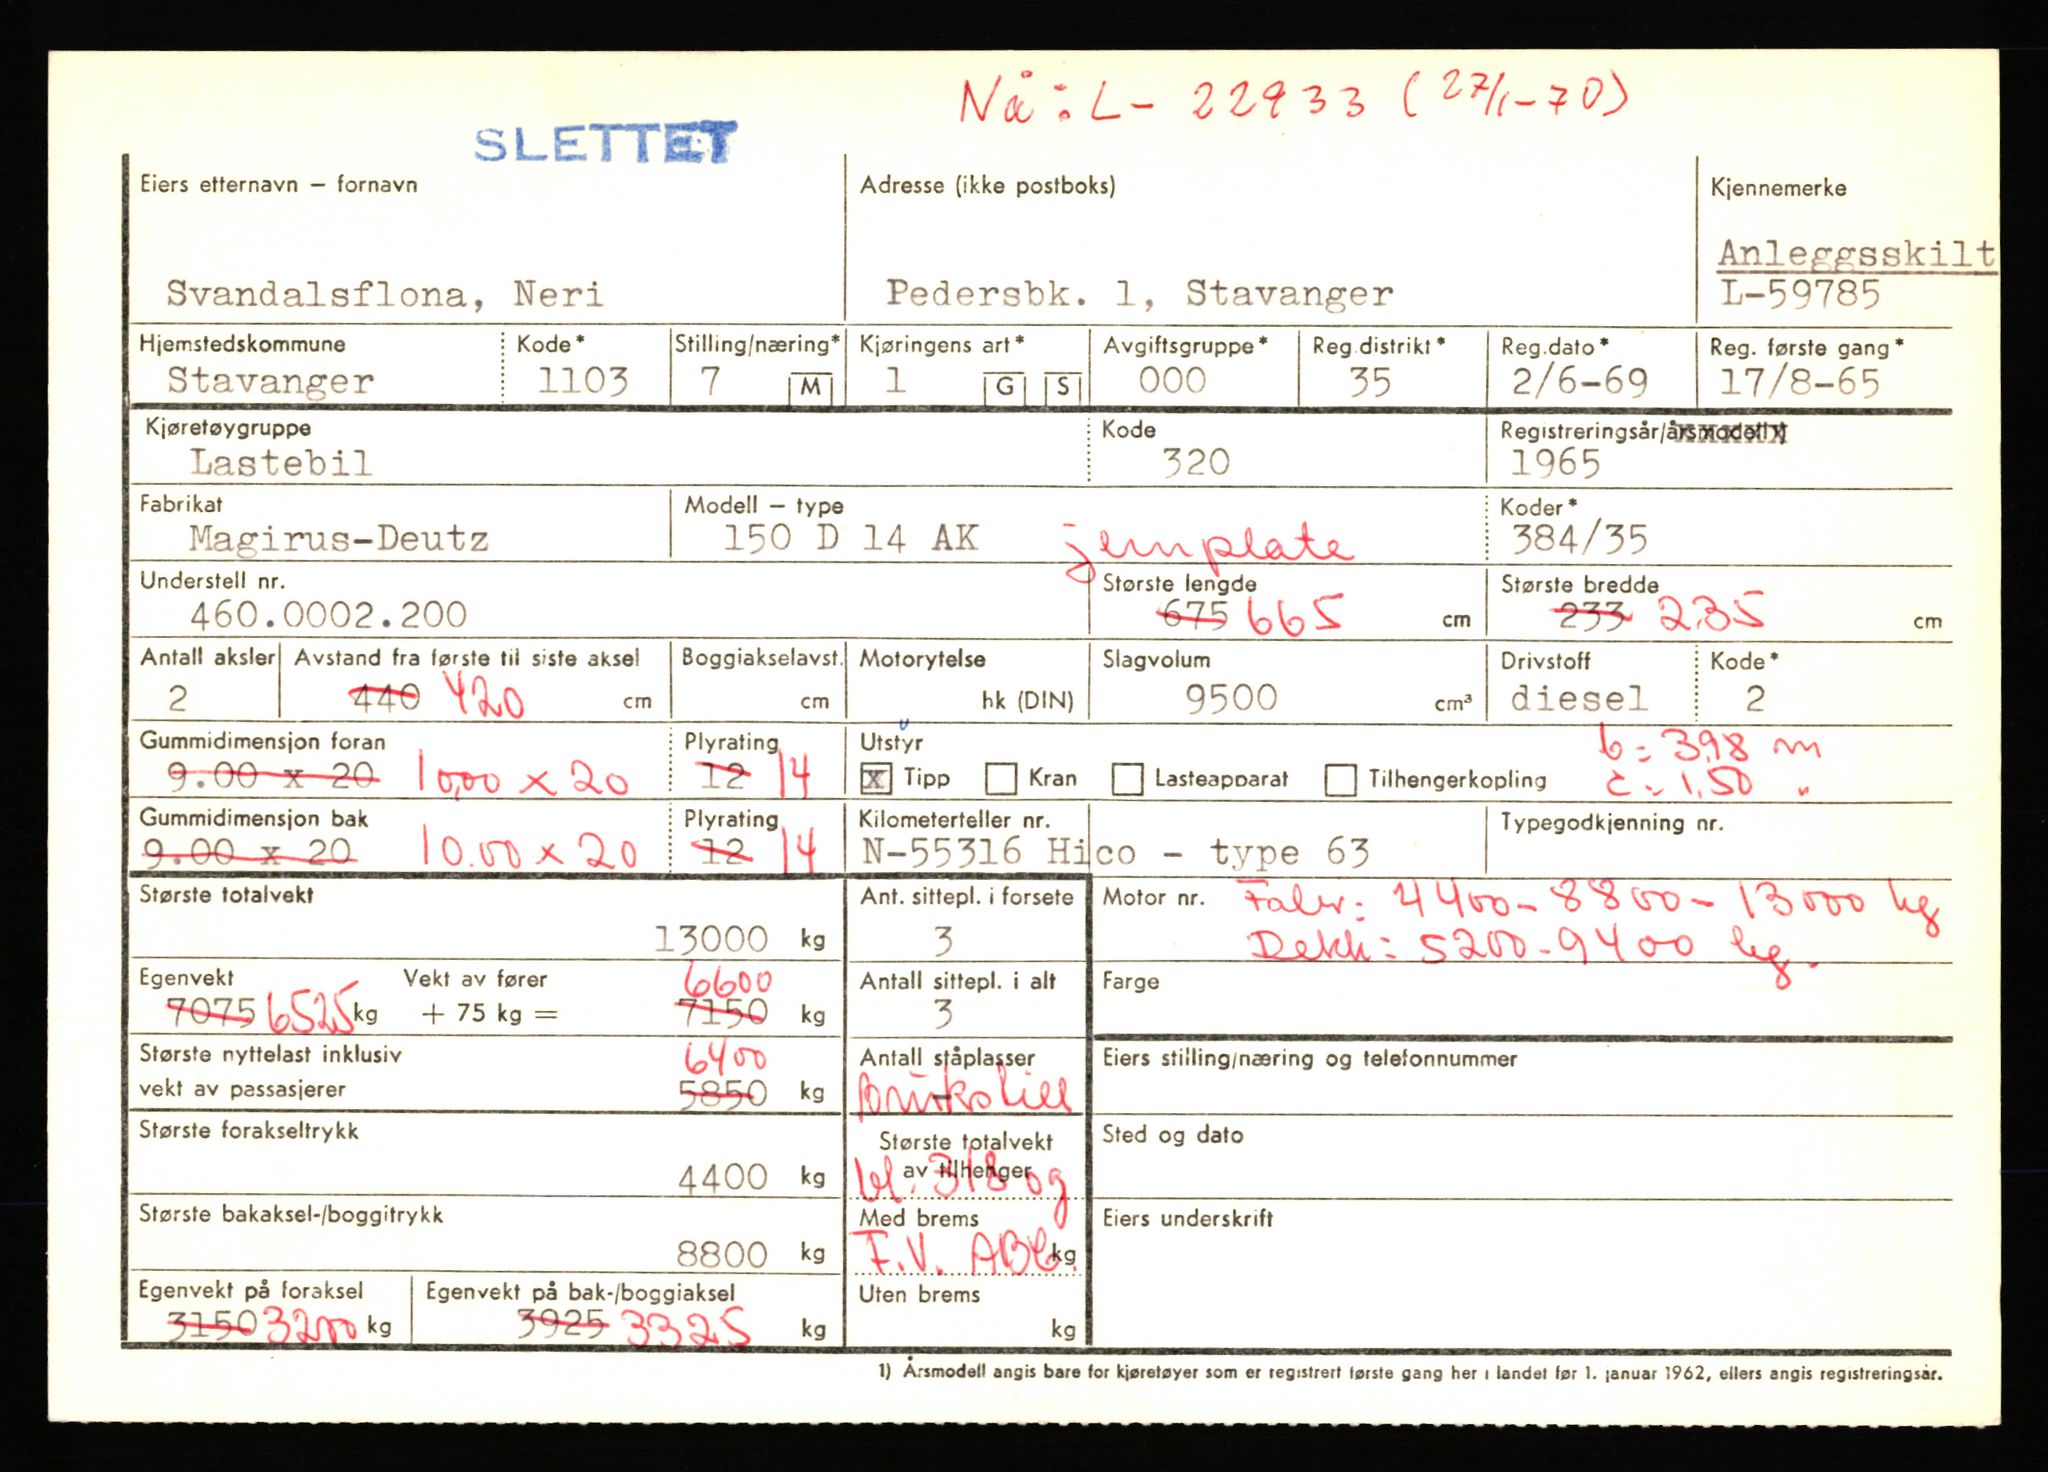 Nå: L- 22933 (27/1-70)
SLETTET
Eiers etternavn – fornavn
Adresse (ikke postboks)
Kjennemerke
Anleggsskilt
Svandalsflona, Neri
Pedersbk. 1, Stavanger
L-59785
Hjemstedskommune
Kode*
Stilling/næring*
Kjøringens art*
Avgiftsgruppe*
Reg.distrikt*
Reg.dato*
Reg. første gang*
Stavanger
1103
7
M
1
G
S
000
35
2/6-69
17/8-65
Kjøretøygruppe
Kode
Registreringsår/årsmodell
Lastebil
320
1965
Fabrikat
Modell – type
Koder*
Magirus-Deutz
150 D 14 AK
jernplate
384/35
Understell nr.
Største lengde
Største bredde
460.0002.200
675 665 cm
233 235 cm
Antall aksler
Avstand fra første til siste aksel
Boggiakselavst.
Motorytelse
Slagvolum
Drivstoff
Kode*
2
440 420 cm
cm
hk (DIN)
9500 cm³
diesel
2
Gummidimensjon foran
Plyrating
Utstyr
b = 3,98 m
9.00 x 20 10,00 x 20
12 14
x Tipp
Kran
Lasteapparat
Tilhengerkopling
c = 1,50 "
Gummidimensjon bak
Plyrating
Kilometerteller nr.
Typegodkjenning nr.
9.00 x 20 10.00 x 20
12 14
N-55316 Hico - type 63
Største totalvekt
Ant. sittepl. i forsete
Motor nr.
4400-8800-13000 kg
13000 kg
3
Dekk: 5200-9400 kg.
Egenvekt
Vekt av fører
6600
Antall sittepl. i alt
Farge
7075 6525 kg
+ 75 kg =
7150 kg
3
Største nyttelast inklusiv
6400
Antall ståplasser
Eiers stilling/næring og telefonnummer
vekt av passasjerer
5850 kg
Største forakseltrykk
Største totalvekt
av tilhenger
Sted og dato
4400 kg
kl. 318 og
Største bakaksel-/boggitrykk
Med brems
Eiers underskrift
8800 kg
kg
Egenvekt på foraksel
Egenvekt på bak-/boggiaksel
Uten brems
3150 3200 kg
3925 3325 kg
kg
1) Årsmodell angis bare for kjøretøyer som er registrert første gang her i landet før 1. januar 1962, ellers angis registreringsår.